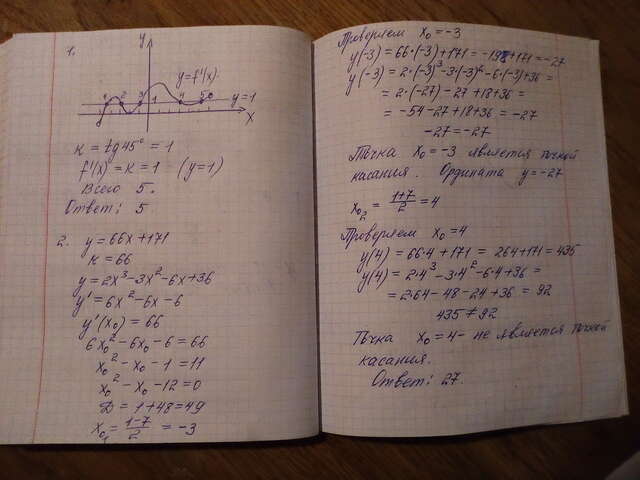 1.
y
y=f'(x)
1 2 3 1 4 5
y=1
x
к = tg45° = 1
f'(x) = к = 1 (y=1)
Всего 5.
Ответ: 5
2. y = 66x+171
к = 66
y = 2x³-3x²-6x+36
y' = 6x²-6x-6
y'(x₀) = 66
6x₀²-6x₀-6 = 66
x₀²-x₀-1 = 11
x₀²-x₀-12 = 0
Д = 1+48 = 49
x₀₁ = (1-7)/2 = -3
Проверяем x₀ = -3
y(-3) = 66·(-3)+171 = -198+171 = -27
y(-3) = 2·(-3)³-3·(-3)²-6·(-3)+36 =
= 2·(-27)-27+18+36 =
= -54-27+18+36 = -27
-27 = -27
Точка x₀ = -3 является точкой
касания. Ордината y = -27
x₀₂ = (1+7)/2 = 4
Проверяем x₀ = 4
y(4) = 66·4+171 = 264+171 = 435
y(4) = 2·4³-3·4²-6·4+36 =
= 2·64-48-24+36 = 92
435 ≠ 92
Точка x₀ = 4 - не является точкой
касания.
Ответ: 27.